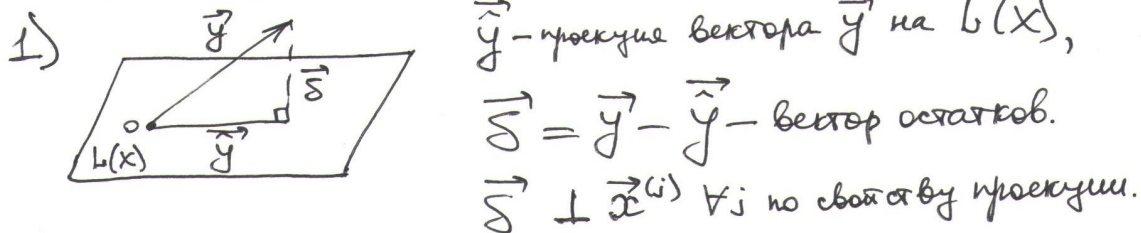 1)
y⃗
δ⃗
O
L(X)
ŷ⃗
ŷ⃗ – проекция вектора y⃗ на L(X),
δ⃗ = y⃗ – ŷ⃗ – вектор остатков.
δ⃗ ⊥ x⃗⁽ʲ⁾ ∀j по свойству проекции.